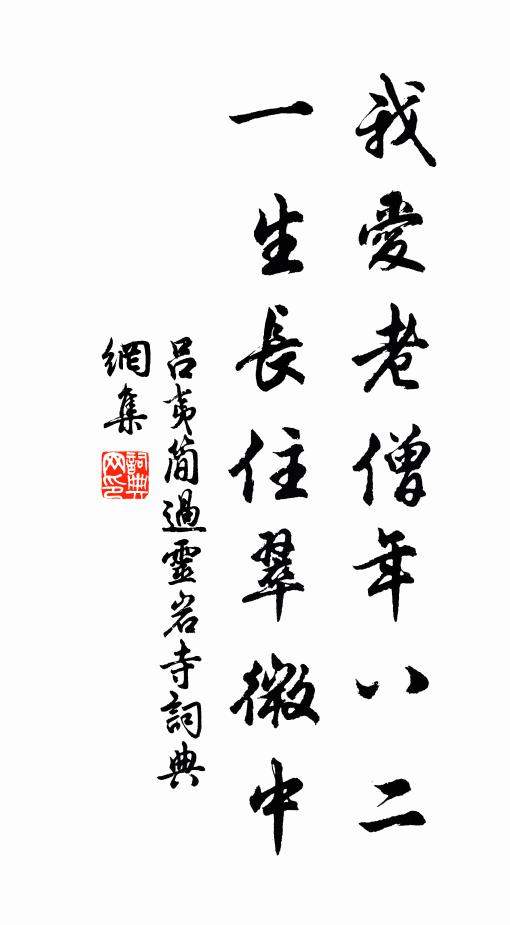 我愛老僧年八二
一生長住翠微中
呂夷簡過靈岩寺詞典
網集
詞典網印